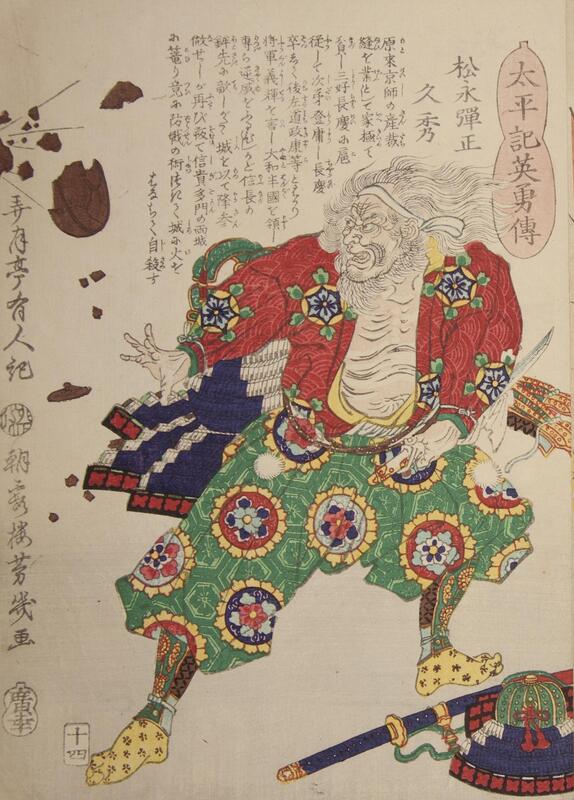 太平記英勇傳
松永彈正
久秀
原來京師の産裁
縫を業として家極て
貧し三好長慶に扈
従して次才登庸し長慶
卒て後左道政康等と
将軍義輝を害し大和半國を領し
専ら逆威をふるひしかど信長の
鉾先に敵しがたく城を以て降参
做せしが再び叛て信貴多門の両城
に篭り竟に防戦の術つきて城に火を
はなちて自殺す
弄月亭有人記
朝霞楼芳幾画
十四